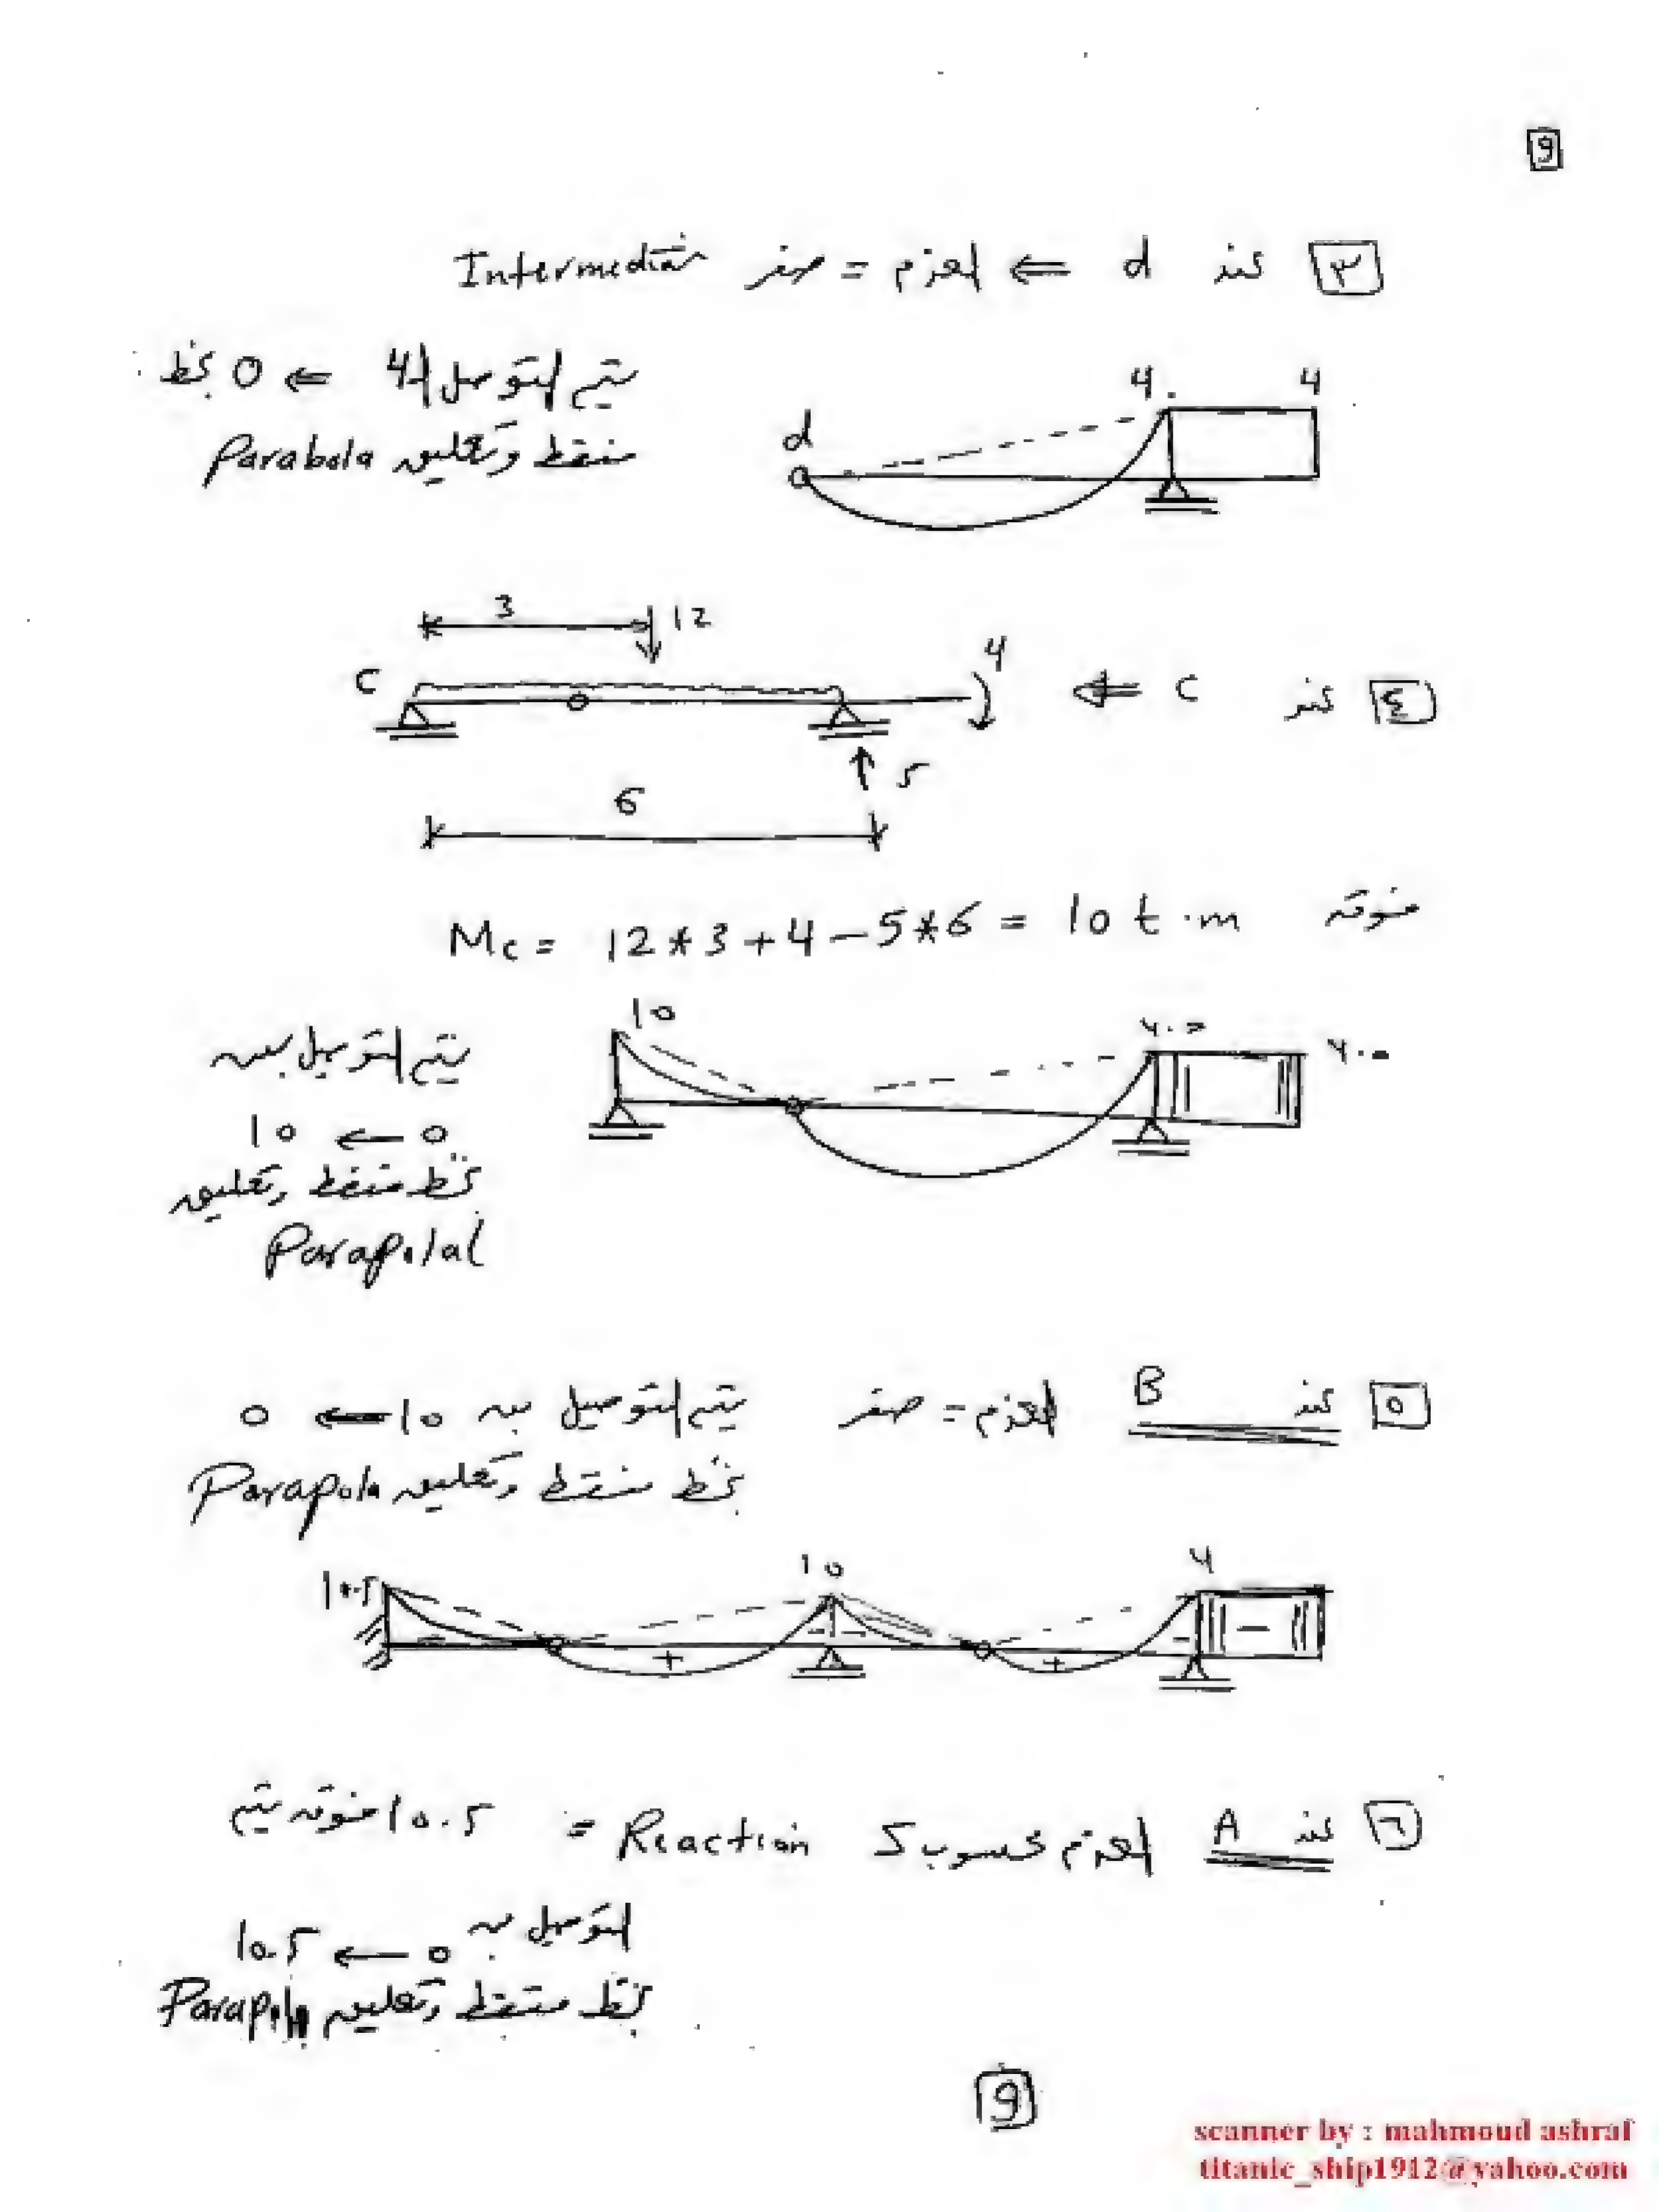 9
٣ عند d ⇐ العزم = صفر Intermediate
d
4.
4
يتم التوصيل 4 ⇐ 0 بخط
منقط وتعليق Parabola
3
12
C
4
5
6
٤ عند C ⇐
Mc = 12*3+4-5*6 = 10 t.m فوق
10
4.0
4.0
يتم التوصيل بين
0 ← 10
بخط منقط وتعليق
Parapolal
٥ عند B العزم = صفر يتم التوصيل بين 10 ← 0
بخط منقط وتعليق Parapola
10.5
10
4
+
-
+
-
-
٦ عند A العزم محسوب ك Reaction = 10.5 فوق يتم
التوصيل بين 0 ← 10.5
بخط منقط وتعليق Parapola
9
scanner by : mahmoud ashraf
titanic_ship1912@yahoo.com